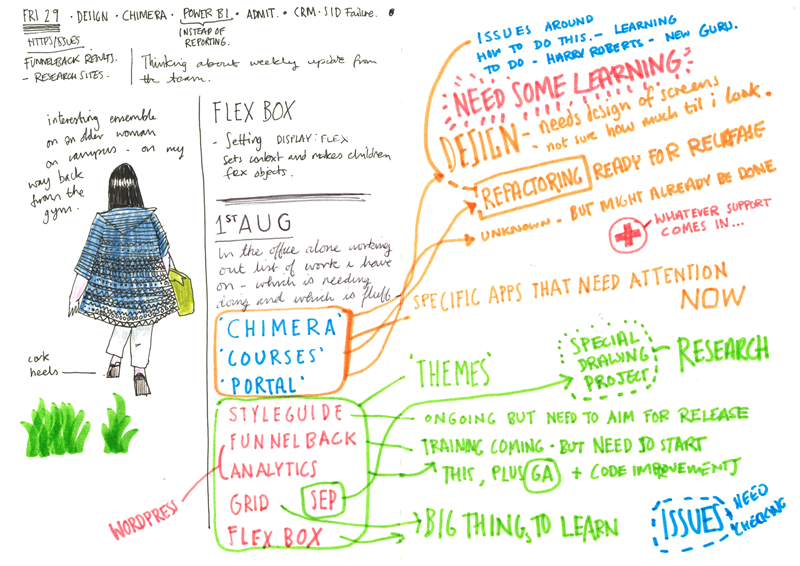 FRI 29 · DESIGN · CHIMERA · POWER BI · ADMIT. · CRM · SID Failure.
INSTEAD OF
REPORTING.
HTTPS/ISSUES
FUNNELBACK
- RESEARCH SITES.
Thinking about weekly update from
the team.
interesting ensemble
on an older woman
on campus - on my
way back
from the
gym.
cork
heels
FLEX BOX
- Setting DISPLAY: FLEX
sets context and makes children
flex objects.
1ST AUG
In the office alone working
out list of work i have
on - which is needing
doing and which is fluff -
'CHIMERA'
'COURSES'
'PORTAL'
STYLEGUIDE
FUNNELBACK
ANALYTICS
GRID
SEP
FLEX BOX
WORDPRESS
ISSUES AROUND
HOW TO DO THIS. - LEARNING
TO DO - HARRY ROBERTS - NEW GURU.
NEED SOME LEARNING
DESIGN - needs design of screens
- not sure how much til i look.
REFACTORING READY FOR RELEASE
UNKNOWN - BUT MIGHT ALREADY BE DONE
WHATEVER SUPPORT
COMES IN...
SPECIFIC APPS THAT NEED ATTENTION
NOW
'THEMES'
SPECIAL
DRAWING
PROJECT
RESEARCH
ONGOING BUT NEED TO AIM FOR RELEASE
TRAINING COMING - BUT NEED TO START
THIS, PLUS GA + CODE IMPROVEMENTS
BIG THINGS TO LEARN
ISSUES NEED
CHECKING